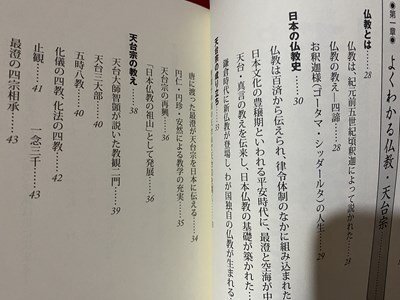 第一章 よくわかる仏教・天台宗……
仏教とは……28
仏教は、紀元前五世紀頃釈迦によって説かれた……28
仏教の教え―四諦……28
お釈迦様(ゴータマ・シッダールタ)の人生……29
日本の仏教史……30
仏教は百済から伝えられ、律令体制のなかに組み込まれた
日本文化の豊穣期といわれる平安時代に、最澄と空海が中
天台・真言の教えを伝来し、日本仏教の基礎が築かれた…
鎌倉時代に新仏教が登場し、わが国独自の仏教が生まれる
天台宗の成り立ち……33
唐に渡った最澄が天台宗を日本に伝える……34
円仁・円珍・安然による教学の充実……35
「日本仏教の祖山」として発展……36
天台宗の再興……36
天台宗の教え……38
天台大師智顗が説いた教観二門……39
天台三大部……40
五時八教……40
化儀の四教、化法の四教……42
止観……41
一念三千……43
最澄の四宗相承……43